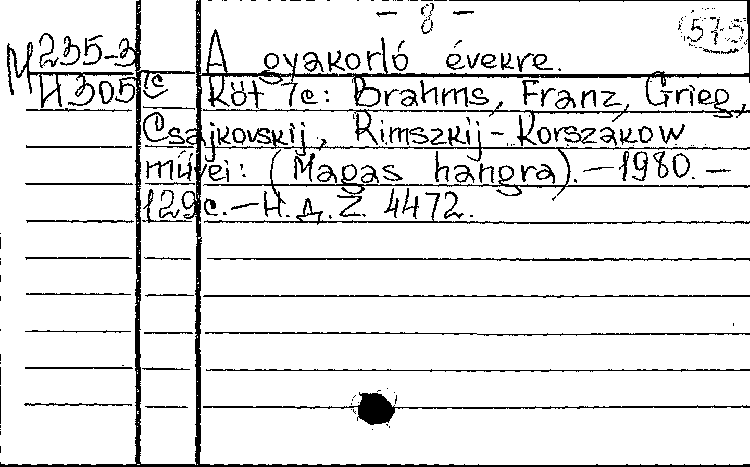 - 8 -
575
M 235-3 A gyakorló évekre.
H 305 /c Köt 7c: Brahms, Franz, Grieg,
Csajkovskij, Rimszkij-Korszakow
művei: (Magas hangra). — 1980. —
129 c. — Н. д. Z. 4472.